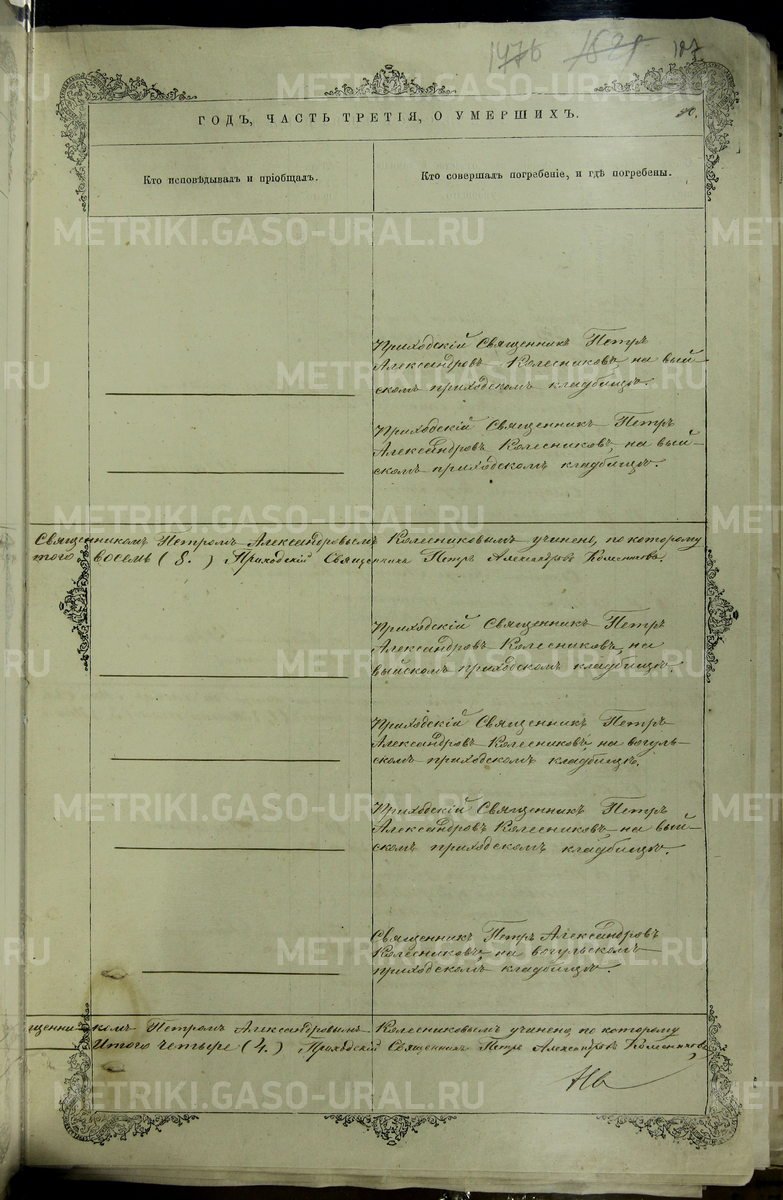 1476 1521 107
ГОДЪ, ЧАСТЬ ТРЕТІЯ, О УМЕРШИХЪ.
Кто исповѣдывалъ и пріобщалъ.
Кто совершалъ погребеніе, и гдѣ погребены.
Приходскій Священникъ Петръ
Александровъ Колесниковъ, на вый-
скомъ приходскомъ кладбищѣ.
Приходскій Священникъ Петръ
Александровъ Колесниковъ, на вый-
скомъ приходскомъ кладбищѣ.
Священникомъ Петромъ Александровымъ Колесниковымъ учинено, по которому
того восемь (8.) Приходскій Священникъ Петръ Александровъ Колесниковъ.
Приходскій Священникъ Петръ
Александровъ Колесниковъ, на
выйскомъ приходскомъ кладбищѣ.
Приходскій Священникъ Петръ
Александровъ Колесниковъ, на вогуль-
скомъ приходскомъ кладбищѣ.
Приходскій Священникъ Петръ
Александровъ Колесниковъ, на вый-
скомъ приходскомъ кладбищѣ.
Священникъ Петръ Александровъ
Колесниковъ, на вогульскомъ
приходскомъ кладбищѣ.
щенникомъ Петромъ Александровымъ Колесниковымъ учинено, по которому
Итого четыре (4.) Приходскій Священникъ Петръ Александровъ Колесниковъ
METRIKI.GASO-URAL.RU